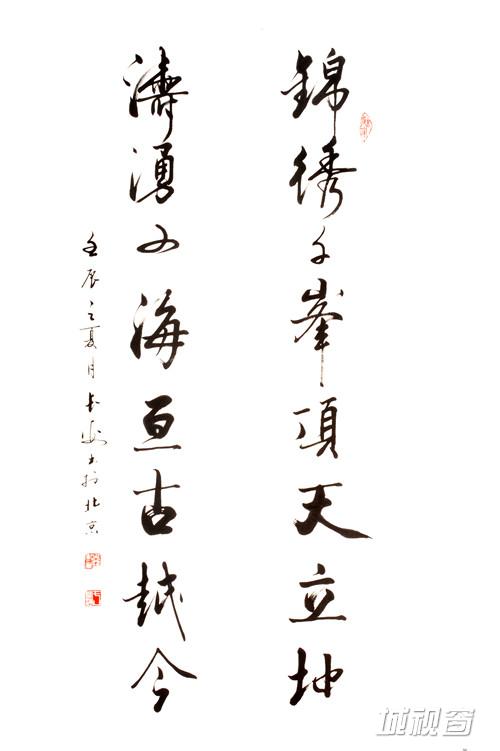 錦綉千峯頂天立坤
濤湧四海亘古越今
壬辰之夏月 书於北京
城视窗